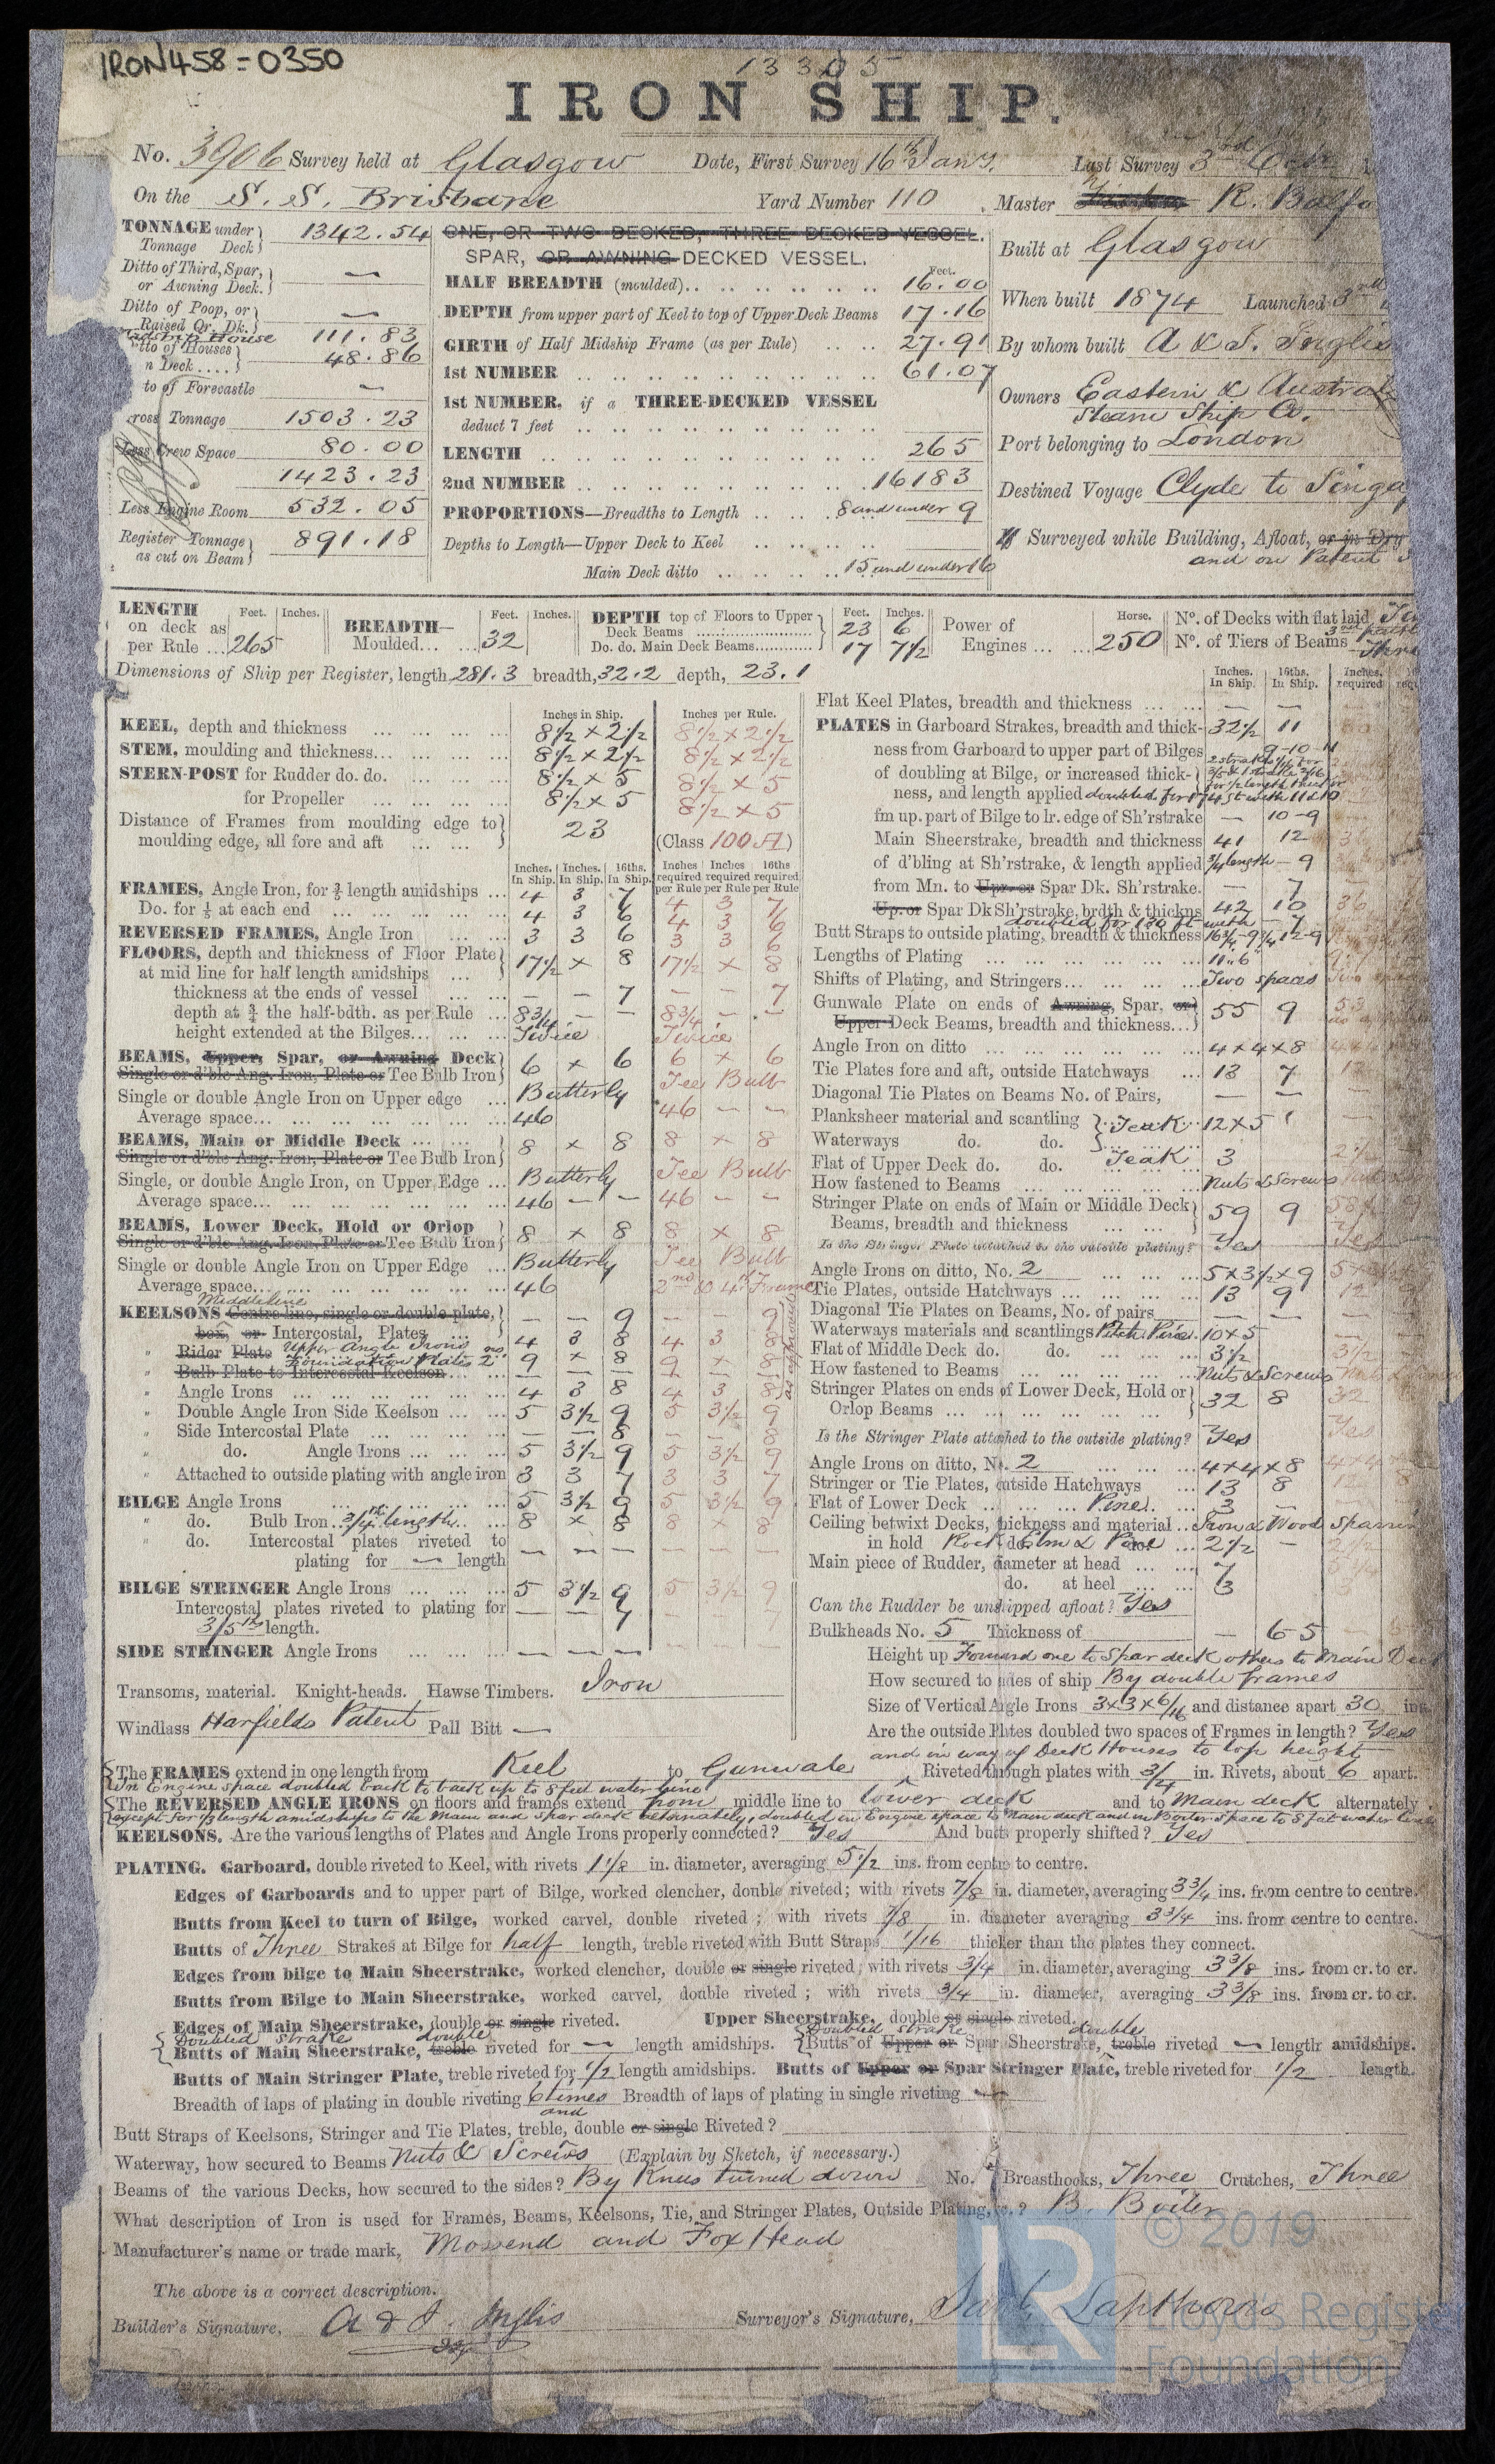 IRON458-0350
13305
IRON SHIP.
No. 3906 Survey held at Glasgow Date, First Survey 16th Jany. Last Survey 3rd Octr
On the S. S. Brisbane Yard Number 110 Master R. Balfo
TONNAGE under Tonnage Deck 1342.54
Ditto of Third, Spar, or Awning Deck. —
Ditto of Poop, or Raised Qr. Dk. —
House 111.83
tto of Houses n Deck .... 48.86
to of Forecastle —
ross Tonnage 1503.23
Less Crew Space 80.00
1423.23
Less Engine Room 532.05
Register Tonnage as cut on Beam 891.18
ONE, OR TWO DECKED, THREE DECKED VESSEL.
SPAR, OR AWNING DECKED VESSEL.
Feet.
HALF BREADTH (moulded) 16.00
DEPTH from upper part of Keel to top of Upper Deck Beams 17.16
GIRTH of Half Midship Frame (as per Rule) 27.91
1st NUMBER 61.07
1st NUMBER, if a THREE-DECKED VESSEL
deduct 7 feet
LENGTH 265
2nd NUMBER 16183
PROPORTIONS—Breadths to Length 8 and under 9
Depths to Length—Upper Deck to Keel
Main Deck ditto 15 and under 16
Built at Glasgow
When built 1874 Launched 3rd
By whom built A & J. Inglis
Owners Eastern & Austral
Steam Ship Co.
Port belonging to London
Destined Voyage Clyde to Singa
If Surveyed while Building, Afloat, or in Dry
and on Patent S
LENGTH on deck as per Rule ... Feet. 265 Inches.
BREADTH— Moulded... Feet. 32 Inches.
DEPTH top of Floors to Upper Deck Beams Feet. 23 Inches. 6
Do. do. Main Deck Beams 17 7½
Power of Engines ... Horse. 250
No. of Decks with flat laid
No. of Tiers of Beams
Dimensions of Ship per Register, length, 281.3 breadth, 32.2 depth, 23.1
Inches in Ship. Inches per Rule.
KEEL, depth and thickness 8½ × 2½ 8½ × 2½
STEM, moulding and thickness... 8½ × 2½ 8½ × 2½
STERN-POST for Rudder do. do. 8½ × 5 8½ × 5
for Propeller 8½ × 5 8½ × 5
Distance of Frames from moulding edge to moulding edge, all fore and aft 23 (Class 100 A)
Inches. In Ship. Inches. In Ship. 16ths. In Ship. Inches required per Rule Inches required per Rule 16ths required per Rule
FRAMES, Angle Iron, for ⅗ length amidships 4 3 7 4 3 7
Do. for ⅕ at each end 4 3 6 4 3 6
REVERSED FRAMES, Angle Iron 3 3 6 3 3 6
FLOORS, depth and thickness of Floor Plate at mid line for half length amidships 17½ × 8 17½ × 8
thickness at the ends of vessel — — 7 — — 7
depth at ¾ the half-bdth. as per Rule 8¾ — — 8¾ — —
height extended at the Bilges Twice Twice
BEAMS, Upper, Spar, or Awning Deck
Single or d'ble Ang. Iron, Plate or Tee Bulb Iron 6 × 6 6 × 6
Single or double Angle Iron on Upper edge Butterly Tee Bulb
Average space 46 46 — —
BEAMS, Main or Middle Deck
Single or d'ble Ang. Iron, Plate or Tee Bulb Iron 8 × 8 8 × 8
Single, or double Angle Iron, on Upper Edge Butterly Tee Bulb
Average space 46 — — 46 — —
BEAMS, Lower Deck, Hold or Orlop
Single or d'ble Ang. Iron, Plate or Tee Bulb Iron 8 × 8 8 × 8
Single or double Angle Iron on Upper Edge Butterly Tee Bulb
Average space 46 2nd to 4th Frame
Middleline
KEELSONS Centre line, single or double plate, box, or Intercostal, Plates — — 9 — — 9
" Rider Plate Upper Angle Irons 4 3 8 4 3 8
Foundation Plates 9 × 8 9 × 8
" Bulb Plate to Intercostal Keelson — — — — — —
" Angle Irons 4 3 8 4 3 8
" Double Angle Iron Side Keelson 5 3½ 9 5 3½ 9
" Side Intercostal Plate — — 8 — — 8
" do. Angle Irons 5 3½ 9 5 3½ 9
" Attached to outside plating with angle iron 3 3 7 3 3 7
BILGE Angle Irons 5 3½ 9 5 3½ 9
" do. Bulb Iron 3/4th length 8 × 8 8 × 8
" do. Intercostal plates riveted to plating for — length — — — — — —
BILGE STRINGER Angle Irons 5 3½ 9 5 3½ 9
Intercostal plates riveted to plating for 3/5th length. — — 7 7
SIDE STRINGER Angle Irons — — — — — —
Transoms, material. Knight-heads. Hawse Timbers. Iron
Windlass Harfields Patent Pall Bitt —
Inches. In Ship. 16ths. In Ship. Inches. required
Flat Keel Plates, breadth and thickness — —
PLATES in Garboard Strakes, breadth and thickness 32½ 11
ness from Garboard to upper part of Bilges 9-10-11
of doubling at Bilge, or increased thickness, and length applied
fm up. part of Bilge to lr. edge of Sh'rstrake — 10-9
Main Sheerstrake, breadth and thickness 41 12 36
of d'bling at Sh'rstrake, & length applied ¾ length — 9
from Mn. to Upr. or Spar Dk. Sh'rstrake. — 7
Up. or Spar Dk Sh'rstrake, brdth & thickns 42 10 36
doubled for 130 ft with — 7
Butt Straps to outside plating, breadth & thickness 16¾-9¼ 12-9
Lengths of Plating 11.6
Shifts of Plating, and Stringers Two spaces Two spaces
Gunwale Plate on ends of Awning, Spar, or Upper Deck Beams, breadth and thickness 55 9 53
Angle Iron on ditto 4×4×8
Tie Plates fore and aft, outside Hatchways 13 7 12
Diagonal Tie Plates on Beams No. of Pairs, — —
Planksheer material and scantling Teak 12×5
Waterways do. do.
Flat of Upper Deck do. do. Teak 3 2½
How fastened to Beams Nuts & Screws
Stringer Plate on ends of Main or Middle Deck Beams, breadth and thickness 59 9 58 9
Is the Stringer Plate attached to the outside plating? Yes Yes
Angle Irons on ditto, No. 2 5×3½×9
Tie Plates, outside Hatchways 13 9 12 9
Diagonal Tie Plates on Beams, No. of pairs — —
Waterways materials and scantlings Pitch Pine 10×5
Flat of Middle Deck do. do. 3½ 3½
How fastened to Beams Nuts & Screws
Stringer Plates on ends of Lower Deck, Hold or Orlop Beams 32 8 32
Is the Stringer Plate attached to the outside plating? Yes Yes
Angle Irons on ditto, No. 2 4×4×8
Stringer or Tie Plates, outside Hatchways 13 8 12 8
Flat of Lower Deck Pine 3 —
Ceiling betwixt Decks, thickness and material Iron & Wood Sparrin
in hold do. Rock Elm & Pine 2½ — 2½
Main piece of Rudder, diameter at head 7
do. at heel 3 3
Can the Rudder be unshipped afloat? Yes
Bulkheads No. 5 Thickness of — 6-5
Height up Forward one to Spar deck others to Main Deck
How secured to sides of ship By double frames
Size of Vertical Angle Irons 3×3×6/16 and distance apart 30 ins
Are the outside Plates doubled two spaces of Frames in length? Yes
and in way of Deck Houses to top height
The FRAMES extend in one length from Keel to Gunwale Riveted through plates with 3/4 in. Rivets, about 6 apart.
In Engine space doubled back to back up to 8 feet water line
The REVERSED ANGLE IRONS on floors and frames extend from middle line to lower deck and to Main deck alternately
except for ½ length amidships to the Main and Spar deck alternately, doubled in Engine space to Main deck and in Boiler space to 8 feet water line
KEELSONS, Are the various lengths of Plates and Angle Irons properly connected? Yes And butts properly shifted? Yes
PLATING. Garboard, double riveted to Keel, with rivets 1⅛ in. diameter, averaging 5½ ins. from centre to centre.
Edges of Garboards and to upper part of Bilge, worked clencher, double riveted; with rivets 7/8 in. diameter, averaging 3¾ ins. from centre to centre.
Butts from Keel to turn of Bilge, worked carvel, double riveted; with rivets 7/8 in. diameter averaging 3¾ ins. from centre to centre.
Butts of Three Strakes at Bilge for half length, treble riveted with Butt Straps 1/16 thicker than the plates they connect.
Edges from bilge to Main Sheerstrake, worked clencher, double or single riveted; with rivets 3/4 in. diameter, averaging 3⅜ ins. from cr. to cr.
Butts from Bilge to Main Sheerstrake, worked carvel, double riveted; with rivets 3/4 in. diameter, averaging 3⅜ ins. from cr. to cr.
Edges of Main Sheerstrake, double or single riveted. Upper Sheerstrake, double or single riveted.
Doubled strake double Doubled strake double
Butts of Main Sheerstrake, treble riveted for — length amidships. Butts of Upper or Spar Sheerstrake, treble riveted — length amidships.
Butts of Main Stringer Plate, treble riveted for ½ length amidships. Butts of Upper or Spar Stringer Plate, treble riveted for 1/2 length.
Breadth of laps of plating in double riveting 6 times Breadth of laps of plating in single riveting
and
Butt Straps of Keelsons, Stringer and Tie Plates, treble, double or single Riveted?
Waterway, how secured to Beams Nuts & Screws (Explain by Sketch, if necessary.)
Beams of the various Decks, how secured to the sides? By Knees turned down No. of Breasthooks, Three Crutches, Three
What description of Iron is used for Frames, Beams, Keelsons, Tie, and Stringer Plates, Outside Plating, &c.? B. Boiler
Manufacturer's name or trade mark, Mossend and Fox Head
The above is a correct description.
Builder's Signature, A & J. Inglis Surveyor's Signature,
LR © 2019
Lloyd's Register
Foundation